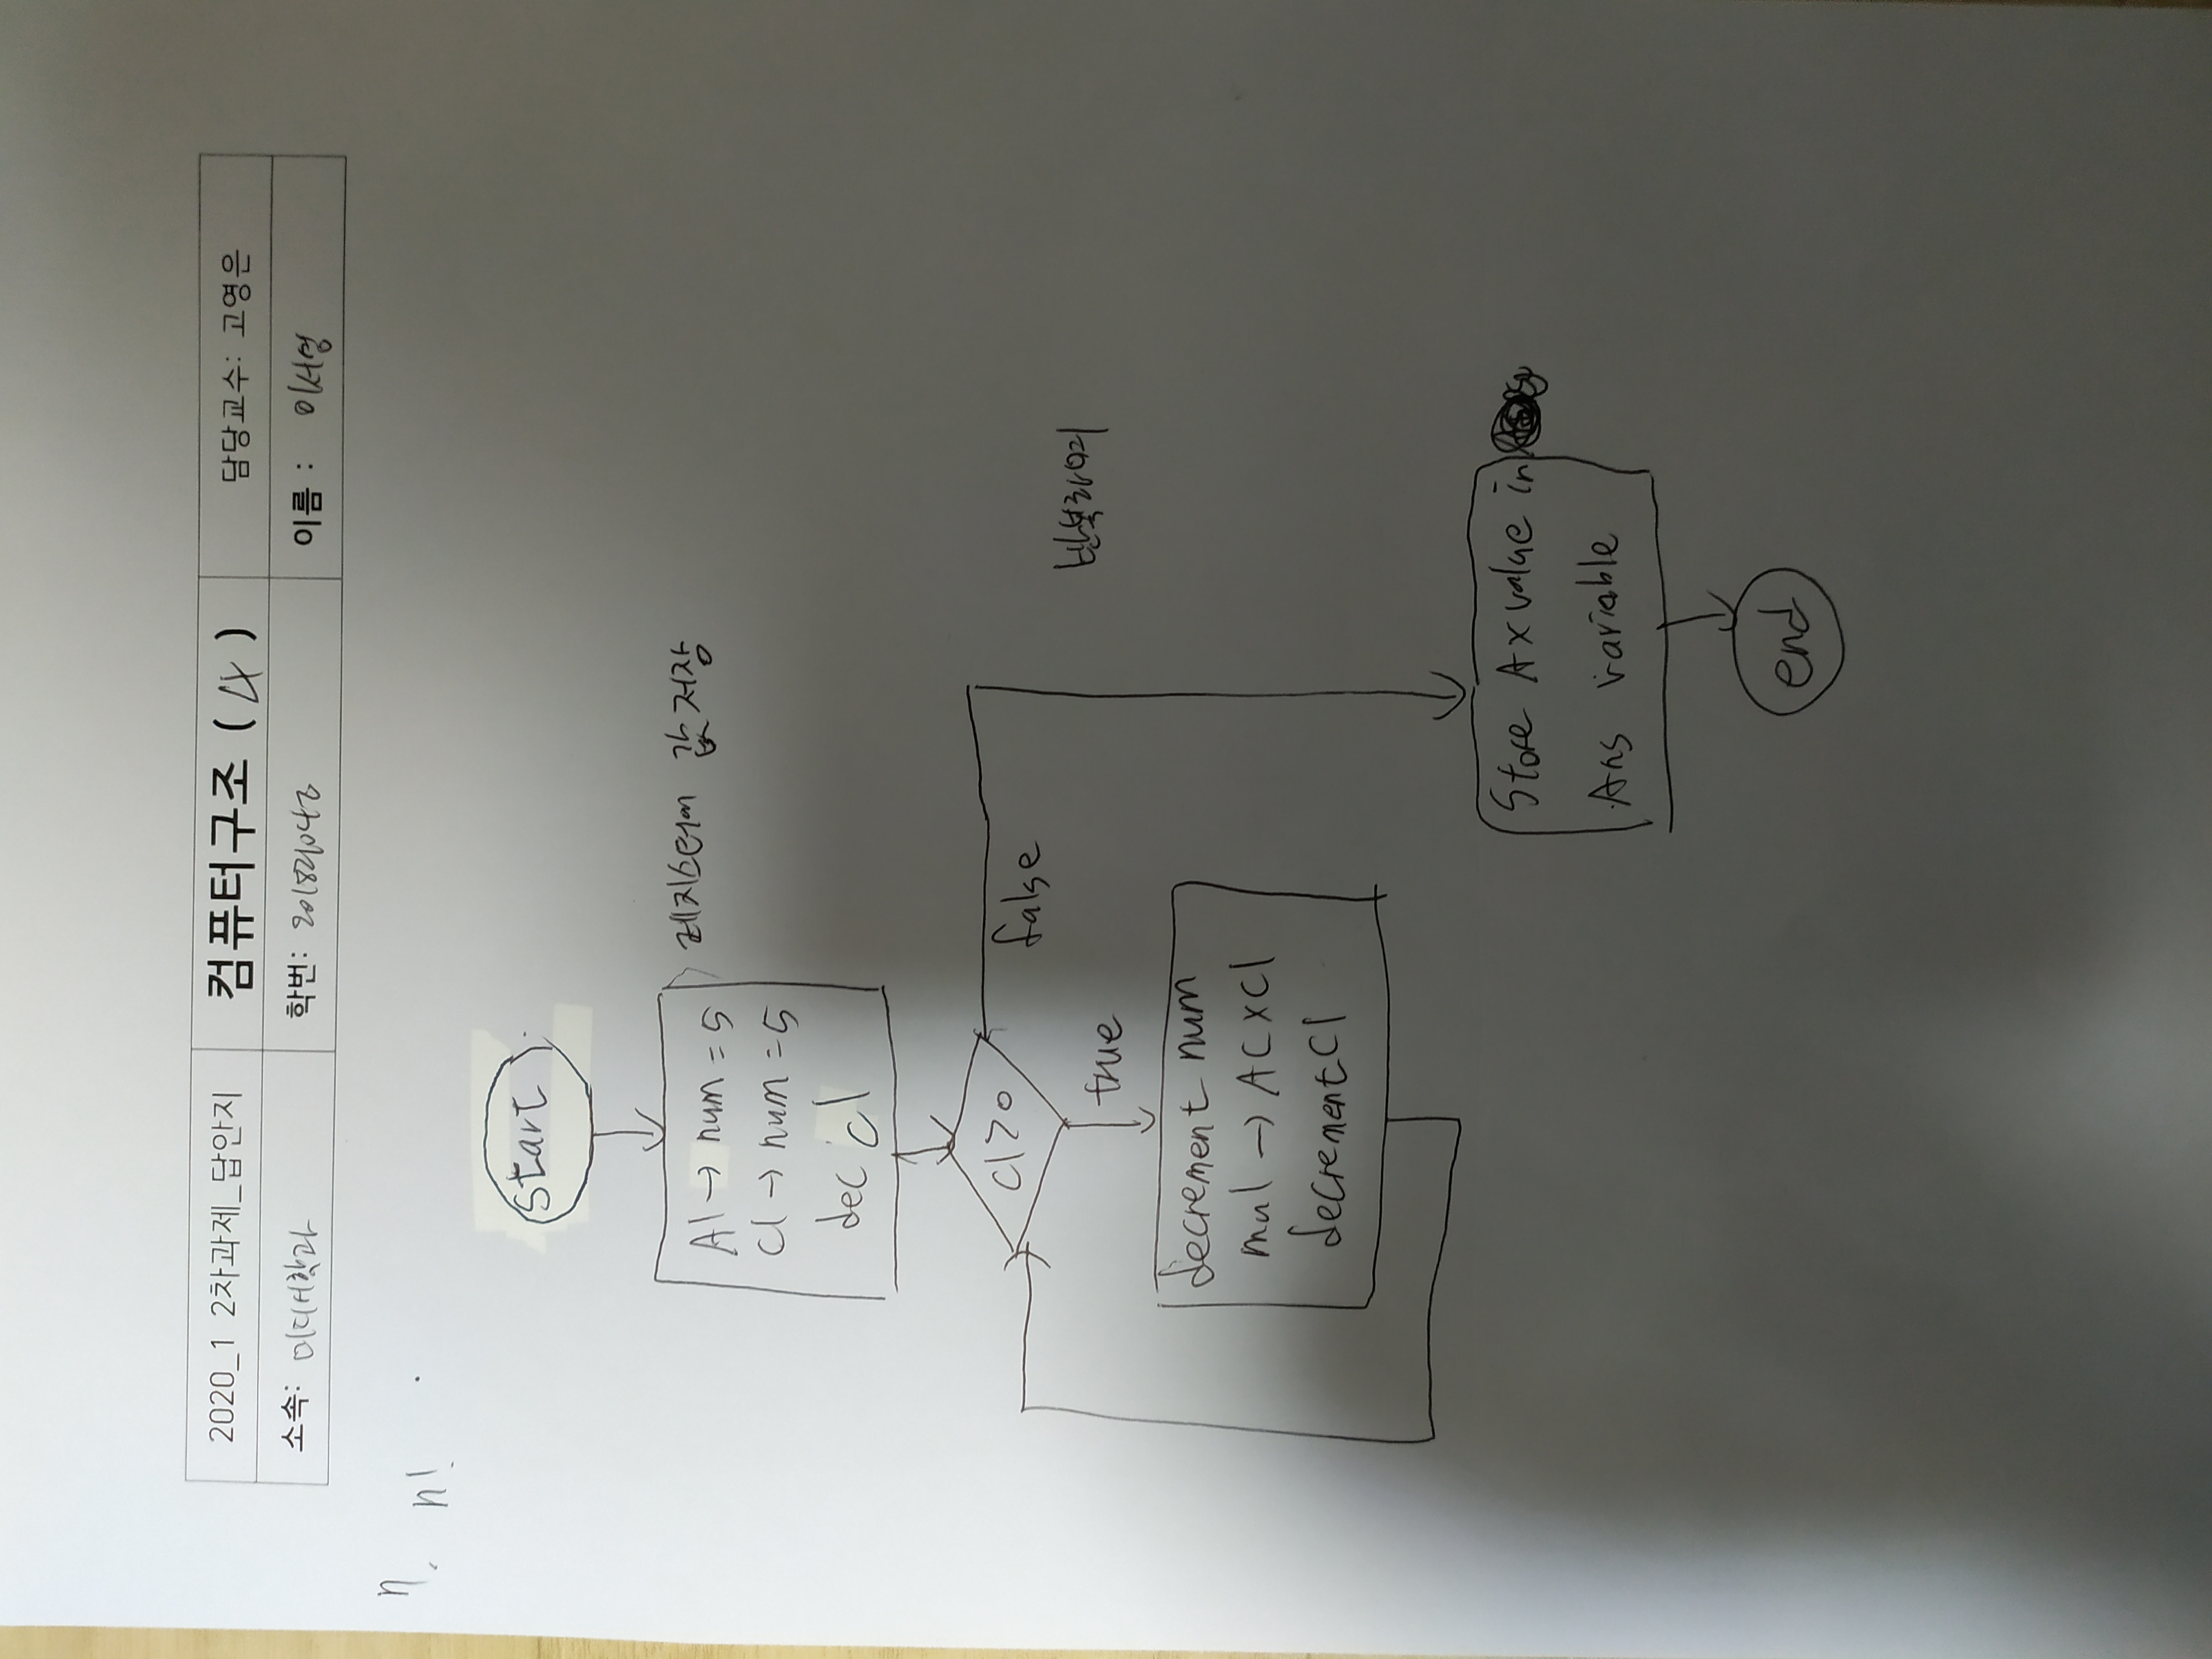 2020_1 2차과제_답안지
컴퓨터구조 ( 4 )
담당교수: 고영은
소속: 미디어학과
학번:
이름 : 이서영
n.
n!
start
Al → num = 5
cl → num = 5
dec cl
레지스터에 값 저장
cl > 0
false
true
반복하며
decrement num
mul → AC x Cl
decrement Cl
Store Ax value in
Ans variable
end